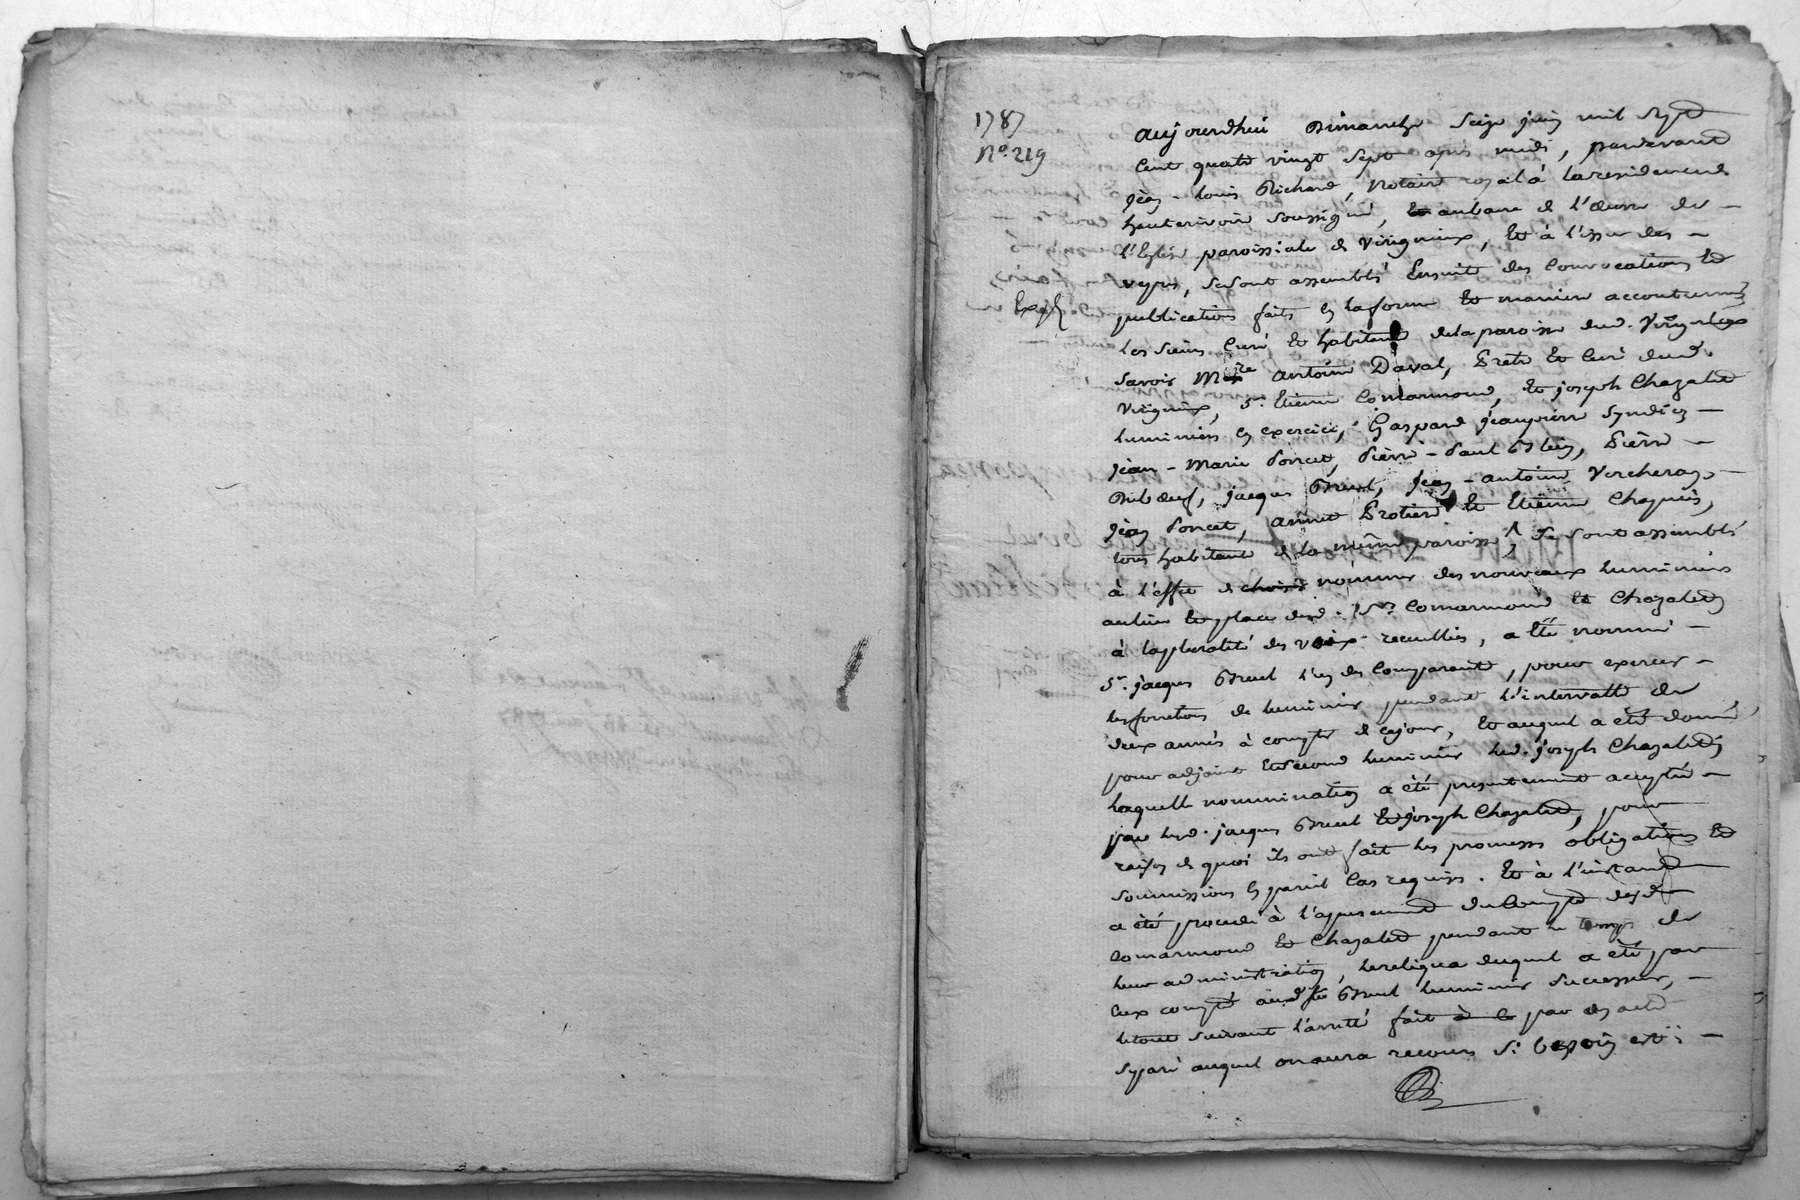 1787
N.° 219
Expé
aujourdhui Dimanche Seize juin mil Sept
Cent quatre vingt Sept apres midi, pardevant
jean-Louis Richard, Notaire royal à la residence de
hauterivoire Soussigné, au banc de l'œuvre de
l'Eglise paroissiale de Virigneux, Et à l'issue des
vepres, Se sont assemblés Ensuite des Convocations Et
publications faites En la forme Et maniere accoutumée
Les Sieurs Curé Et habitants de la paroisse dud. Virigneux
Savoir M.re Antoine Daval, Prêtre Et Curé dud.
Virigneux, S.r Etienne Comarmond, Et joseph Chazalet
luminiers En exercice, Gaspard jeanpierre Syndicq
jean-Marie Poncet, Pierre-Paul Blein, Pierre
Dubœuf, jacques Breul, jean-antoine Vercherand,
jean Poncet, annet Protiere Et Etienne Chapuis,
tous habitants de la même paroisse, Se sont assemblés
à l'effet de choisir nommer des nouveaux luminiers
au lieu Et place desd. S.rs Comarmond Et Chazalet,
à la pluralité des voix recueillies, a Eté nommé
S.r jacques Breul l'un des Comparants, pour exercer
les fonctions de luminier pendant l'intervalle de
deux années à compter de ce jour, Et auquel a été donné
pour adjoint Et Second luminier led. joseph Chazalet,
laquelle nomination a été presentement acceptée
par lesd. jacques Breul Et joseph Chazalet, pour
raison de quoi ils ont fait les promesses obligations Et
Soumissions En pareil Cas requises. Et à l'instant
a été procedé à l'apurement du Compte desd.
Comarmond Et Chazalet pendant le temps de
leur administration, le reliqua duquel a été par
Eux compté aud. Breul luminier Successeur,
le tout Suivant l'arrêté fait à la par acte
Separé auquel on aura recours Si besoin est;